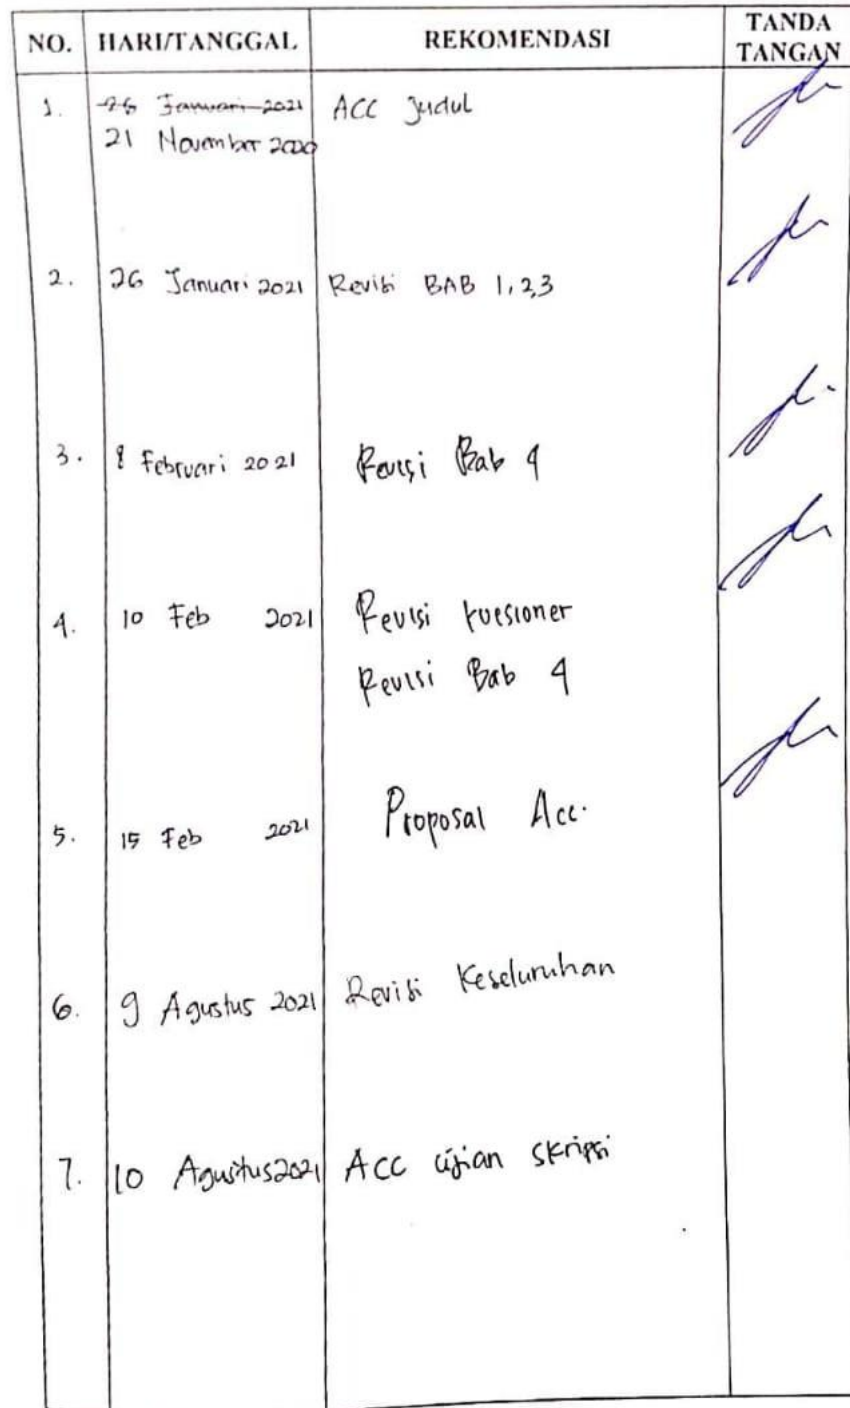 NO. HARI/TANGGAL REKOMENDASI TANDA TANGAN
1. 26 Januari 2021 ACC Judul
21 November 2020
2. 26 Januari 2021 Revisi BAB 1, 2, 3
3. 8 Februari 2021 Revisi Bab 4
4. 10 Feb 2021 Revisi kuesioner
Revisi Bab 4
5. 15 Feb 2021 Proposal Acc.
6. 9 Agustus 2021 Revisi Keseluruhan
7. 10 Agustus 2021 ACC ujian skripsi